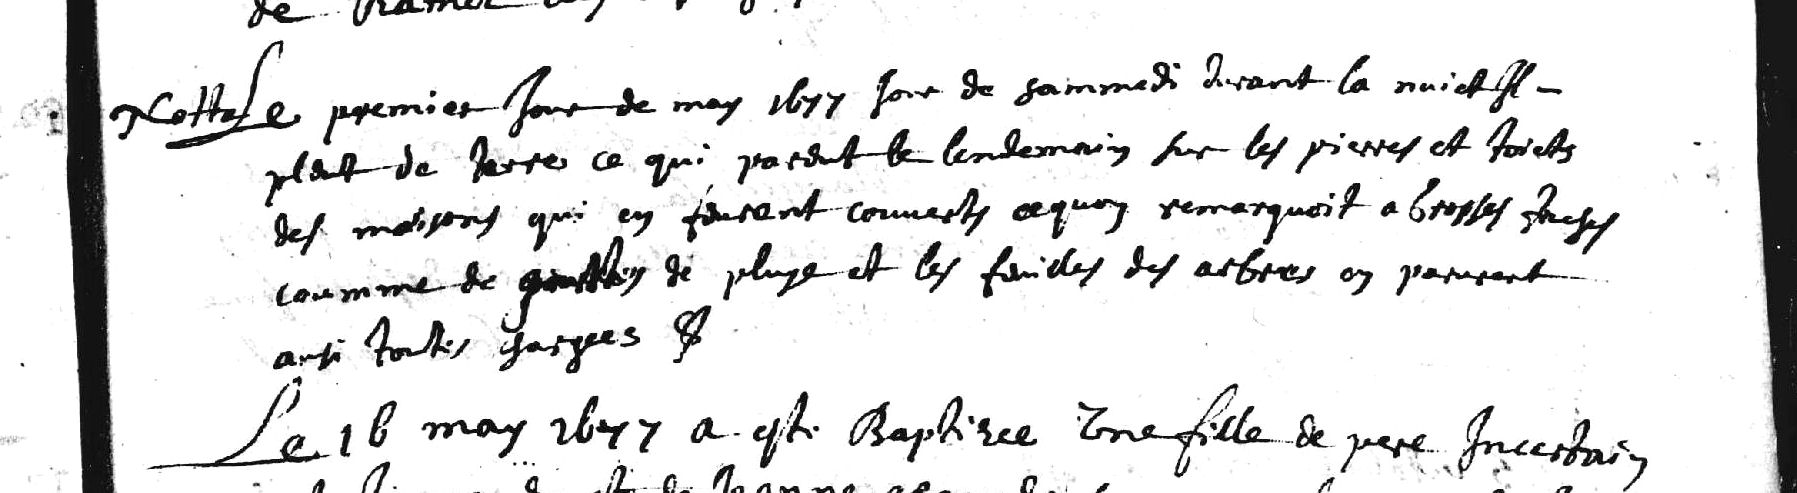 de
Notta Le premier Jour de may 1677 Jour de sammedi durant la nuict Il -
pleut de terre ce qui pareut le lendemain sur les pierres et toicts
des maisons qui en feurent couverts cequon remarquoit a grosses taches
coumme de gouttes de pluye et les feuilles des arbres en parurent
ausi toutes chargees
Le 16 may 1677 a este Baptizee Une fille de pere Incertain